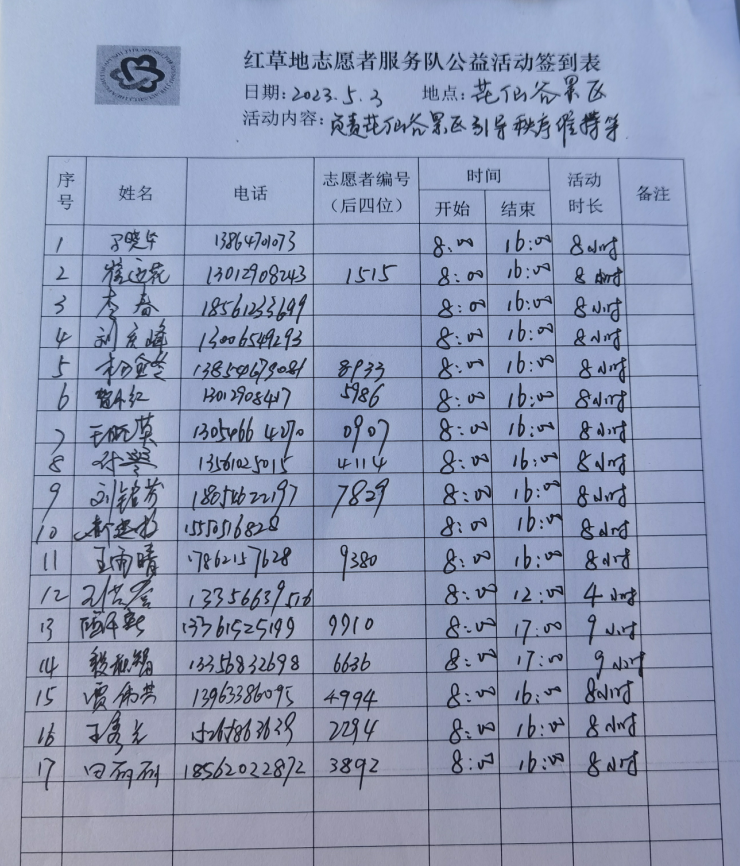 红草地志愿者服务队公益活动签到表
日期: 2023.5.3 地点: 花仙谷果区
活动内容: 负责花仙谷果区引导秩序维持等
序号 姓名 电话 志愿者编号（后四位） 时间 开始 结束 活动时长 备注
1 晓华 8:00 16:00 8小时
2 花 13012908243 1515 8:00 16:00 8小时
3 春 18561233699 8:00 16:00 8小时
4 刘 峰 13006549293 8:00 16:00 8小时
5 8933 8:00 16:00 8小时
6 红 13012908417 5986 8:00 16:00 8小时
7 王 英 13054664270 0907 8:00 16:00 8小时
8 13561025015 4114 8:00 16:00 8小时
9 刘 芳 18054622197 7829 8:00 16:00 8小时
10 8:00 16:00 8小时
11 王雨晴 17862157628 9380 8:00 16:00 8小时
12 13356639516 8:00 12:00 4小时
13 13361525199 9910 8:00 17:00 9小时
14 13356832698 6636 8:00 17:00 9小时
15 贾 13963386095 4994 8:00 16:00 8小时
16 王秀 15265863639 2294 8:00 16:00 8小时
17 田 18562022872 3892 8:00 16:00 8小时